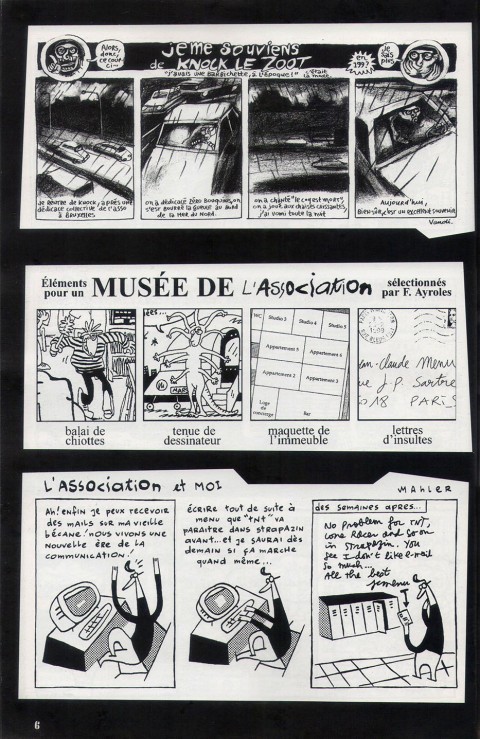 Alors,
donc,
ce cour-
ci~
je me souviens
de KNOCK LE ZOOT
"j'avais une barbichette, à l'époque!"
c'était
la mode.
en
1997
je
sais
plus
Je rentre de Knock, après une
dédicace collective de l'asso
à Bruxelles
on a dédicacé Zéro Bouquins, on
s'est bourré la gueule au bord
de la Mer du Nord.
on a chanté "le coyest mort",
on a joué aux chaises caissantes,
j'ai vomi toute la nuit
Aujourd'hui,
Bien sûr, c'est un excellent souvenir
Vanoli.
Éléments
pour un
MUSÉE DE L'ASSOCIATION
sélectionnés
par F. Ayroles
WC
Studio 3
Studio 4
Studio 5
Appartement 5
Appartement 6
Appartement 2
Appartement 3
Loge
de
concierge
Bar
1999
ean-Claude Menu
ue J.P. Sartre
018 PARIS
balai de
chiottes
tenue de
dessinateur
maquette de
l'immeuble
lettres
d'insultes
L'ASSOCIATION et MOI
MAHLER
Ah! enfin je peux recevoir
des mails sur ma vieille
bécane! nous vivons une
nouvelle ère de la
communication!
écrire tout de suite à
menu que "TNT" va
paraitre dans strapazin
avant... et je saurai dès
demain si ça marche
quand même...
des semaines apres...
No Problem for TNT,
Lone Racer and so on
in Strapazin. You
see I don't like e-mail
so much...
All the best
jcmenu
6